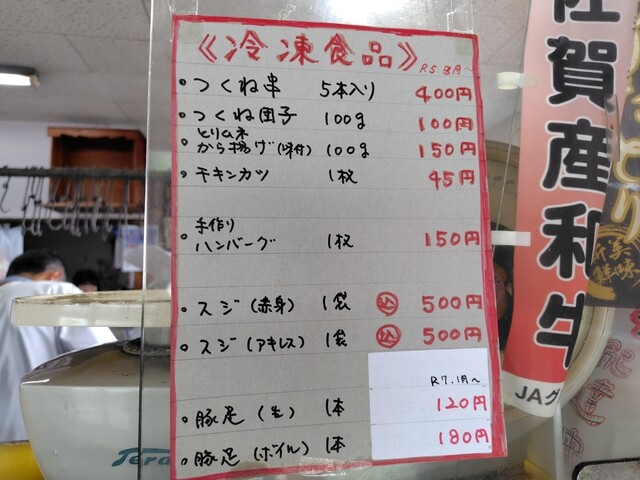 《冷凍食品》
R5 3月〜
つくね串 5本入り 400円
つくね団子 100g 100円
とりムネ
から揚げ(味付) 100g 150円
チキンカツ 1枚 45円
手作り
ハンバーグ 1枚 150円
スジ(赤身) 1袋 込 500円
スジ(アキレス) 1袋 込 500円
R7.1月〜
豚足(生) 1本 120円
豚足(ボイル) 1本 180円
佐賀産和牛
JAグ
Tera